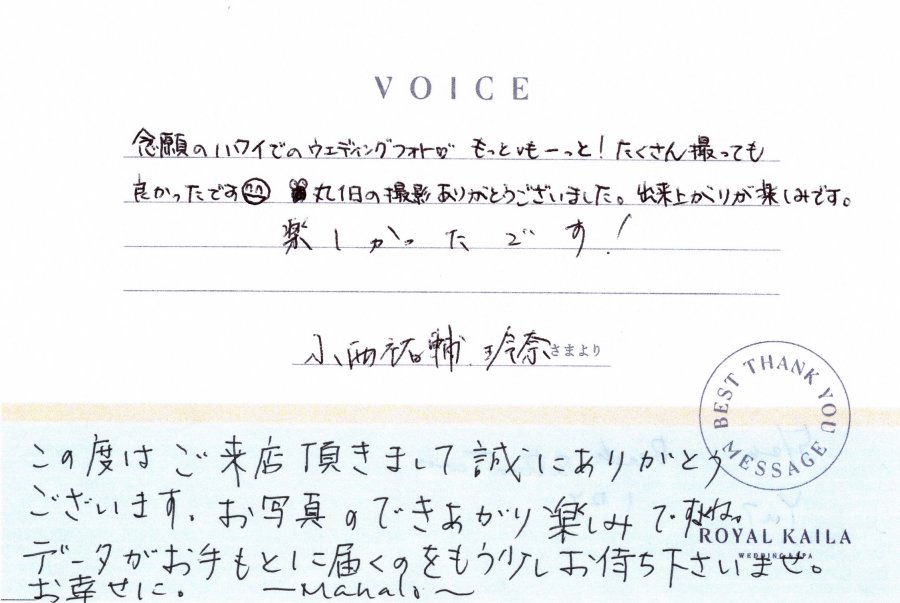 VOICE
念願のハワイでのウエディングフォト♡ もっともーっと!たくさん撮っても
良かったです 丸1日の撮影ありがとうございました。出来上がりが楽しみです。
楽しかったです!
小西祐輔 玲奈さまより
BEST THANK YOU MESSAGE
この度はご来店頂きまして誠にありがとう
ございます。お写真のできあがり楽しみですね。
ROYAL KAILA
WEDDING & SPA
データがお手もとに届くのをもう少しお待ち下さいませ。
お幸せに。 ーMahaloー